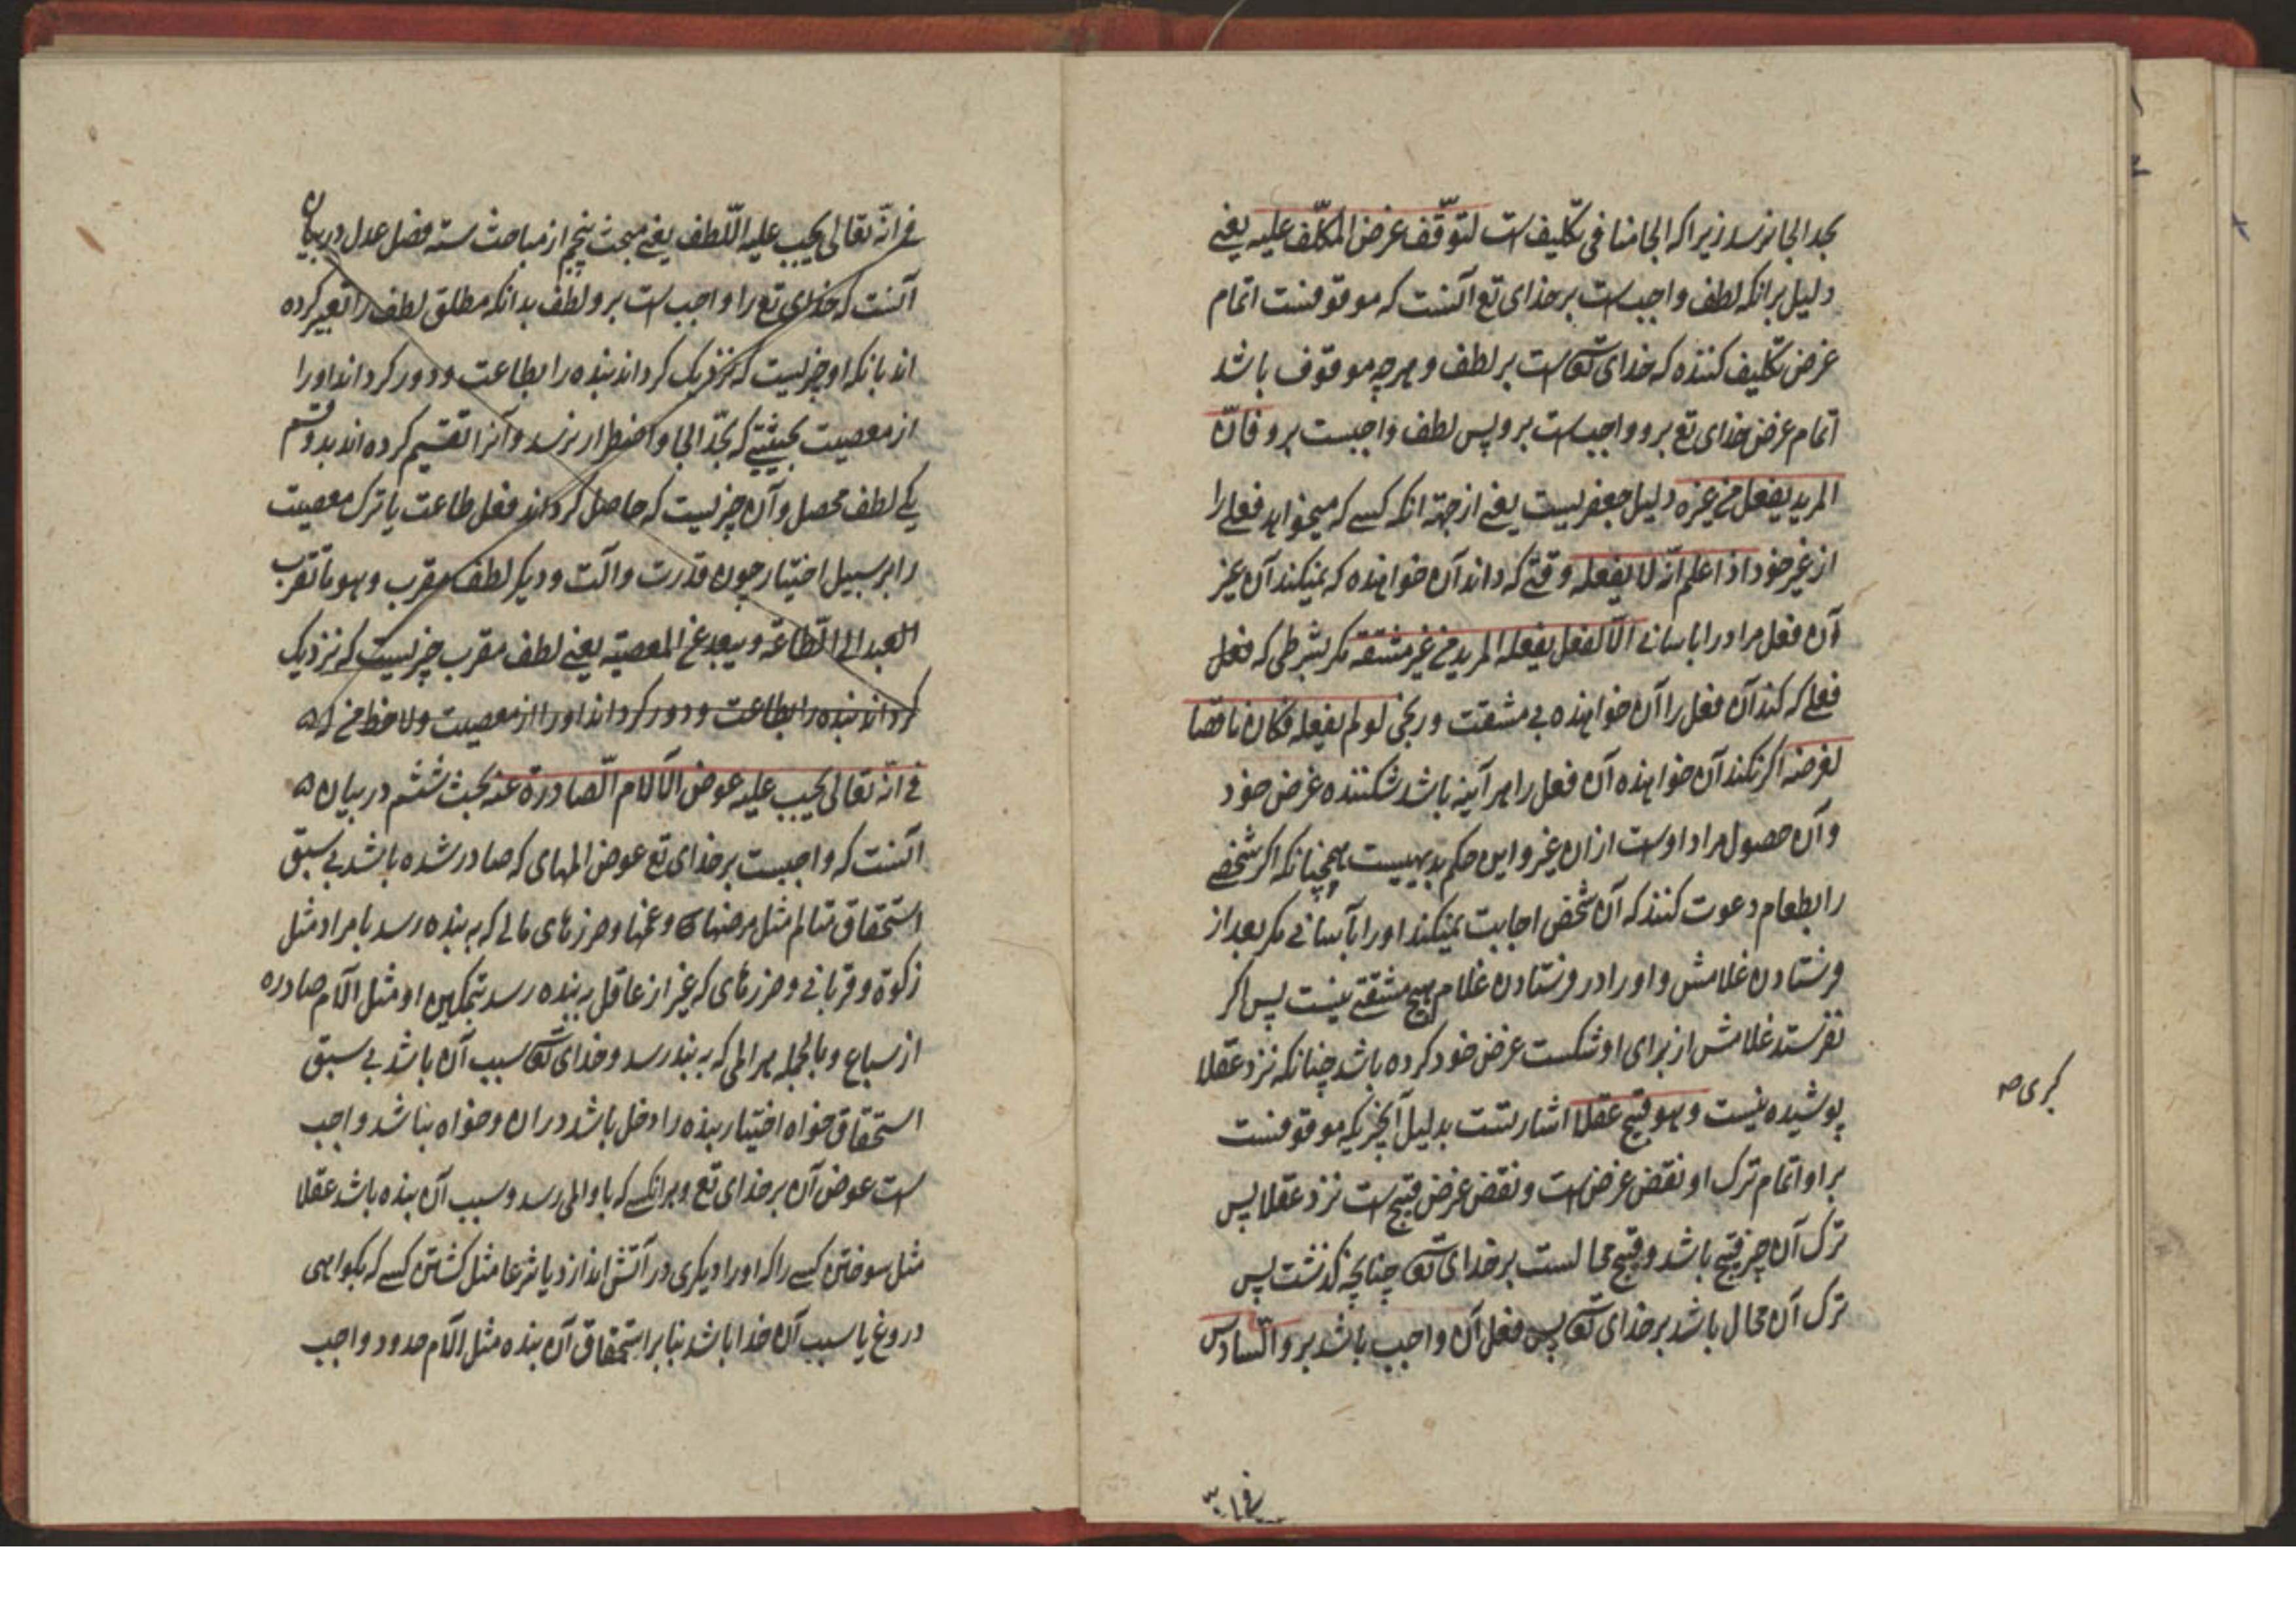 بحد الجا نرسد زیرا که الجا منافی تکلیف است لتوقّف غرض المکلّف علیه یعنی
دلیل برانکه لطف واجب است برخدای تع آنست که موقوفست اتمام
غرض تکلیف کننده که خدای تعا است بر لطف و هرچه موقوف باشد
اتمام غرض خدای تع برو واجب است برو پس لطف واجبست برو فانّ
المرید یفعل من غیره دلیل جعفریست یعنی از جهة انکه کسے که میخواهد فعلے را
از غیر خود اذا علم انّه لا یفعله وقتے که داند آن خواهنده که نمیکند آن غیر
آن فعل مراد را باسانے الّا لفعل یفعله المرید من غیر مشقة مکر بشرطی که فعل
فعلے که کند آن فعل را آن خواهنده بے مشقت و رنجی لو لم یفعله فکان ناقضا
لغرضه اکر نکند آن خواهنده آن فعل را هر آینه باشد شکننده غرض خود
و آن حصول مراد اوست ازان غیر و این حکم بدیهیست همچنانکه اکر شخصے
را بطعام دعوت کنند که آن شخص اجابت نمیکند او را بآسانے مکر بعد از
فرستادن غلامش و او را در فرستادن غلام هیچ مشقتے نیست پس اکر
نفرستد غلامش از برای او شکست غرض خود کرده باشد چنانکه نزد عقلا
پوشیده نیست و هو قبیح عقلا اشارتست بدلیل آنچیزیکه موقوفست
بر او اتمام ترک او نقض غرض است و نقض غرض قبیح است نزد عقلا پس
ترک آن چیز قبیح باشد و قبیح محالست برخدای تعا چنانچه کذشت پس
ترک آن محال باشد برخدای تعا پس فعل آن واجب باشد برو السّادس
کبری صح
فی انه
فی انّه تعالی یجب علیه اللّطف یعنی مبحث پنجم از مباحث ستّه فصل عدل در بیان
آنست که خدای تع را واجب است برو لطف بدانکه مطلق لطف را تعبیر کرده
اند بانکه او چیزیست که نزدیک کرداند بنده را بطاعت و دور کرداند او را
از معصیت بحیثیتے که بحدّ الجا و اضطرار نرسد و آنرا تقسیم کرده اند بدو قسم
یکے لطف محصل و آن چیزیست که حاصل کرداند فعل طاعت یا ترک معصیت
را بر سبیل اختیار چون قدرت و آلت و دیکر لطف مقرب و هو ما تقرب
العبد الی الطّاعة و یبعد عن المعصیة یعنی لطف مقرب چیزیست که نزدیک
کرداند بنده را بطاعت و دور کرداند او را از معصیت و لا حظ
فی انّه تعالی یجب علیه عوض الآلام الصّادرة عنه بحث ششم در بیان
آنست که واجبست برخدای تع عوض المهای که صادر شده باشد بے سبق
استحقاق متالم مثل مرضها و غمها و ضررهای مالے که به بنده رسد بامر او مثل
زکوة و قربانے و ضررهای که غیر از عاقل به بنده رسد بتمکین او مثل الآم صادره
از سباع و بالجمله هر المی که به بنده رسد و خدای تعا سبب آن باشد بے سبق
استحقاق خواه اختیار بنده را دخل باشد دران و خواه نباشد واجب
است عوض آن برخدای تع و هرانکسے که باو المی رسد و سبب آن بنده باشد عقلا
مثل سوختن کسے را که او را دیکری در آتش اندازد یا شرعا مثل کشتن کسے که بکواهی
دروغ یا سبب آن خدا باشد بنا بر استحقاق آن بنده مثل الآم حدود واجب